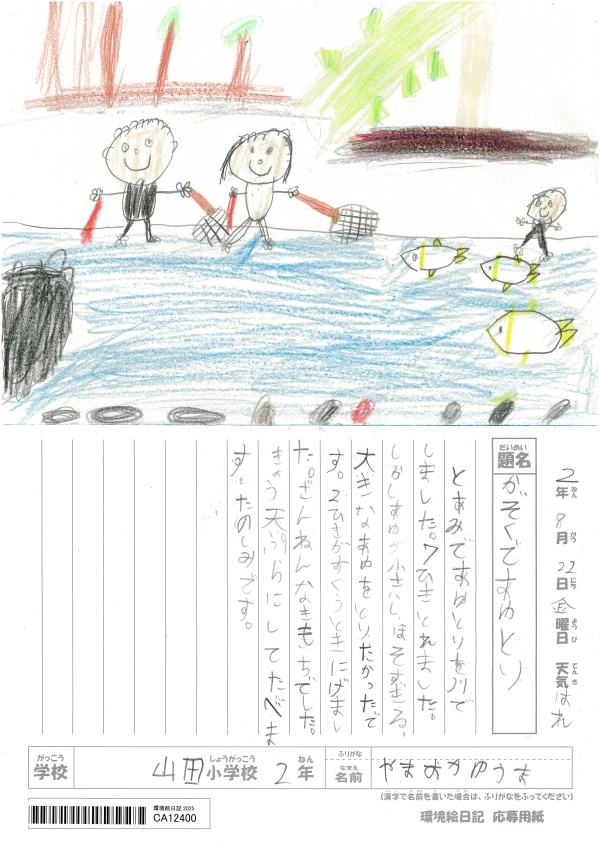 2年8月22日金曜日 天気はれ
ねん がつ にち ようび てんき
だいめい
題名 がそくであゆとり
とあみであゆとりを川で
しました。7ひきとれました。
しかしあゆが小さいし、ほそすぎる、
大きなあゆをとりたかったで
す。2ひきがすくうときにげまし
た。ざんねんなきもちでした。
きょう天ぷらにしてたべま
す。たのしみです。
がっこう しょうがっこう ねん ふりがな
学校 山田小学校 2年
なまえ
名前 やまおかゆうま
(漢字で名前を書いた場合は、ふりがなをふってください)
環境絵日記 2025
CA12400
環境絵日記 応募用紙